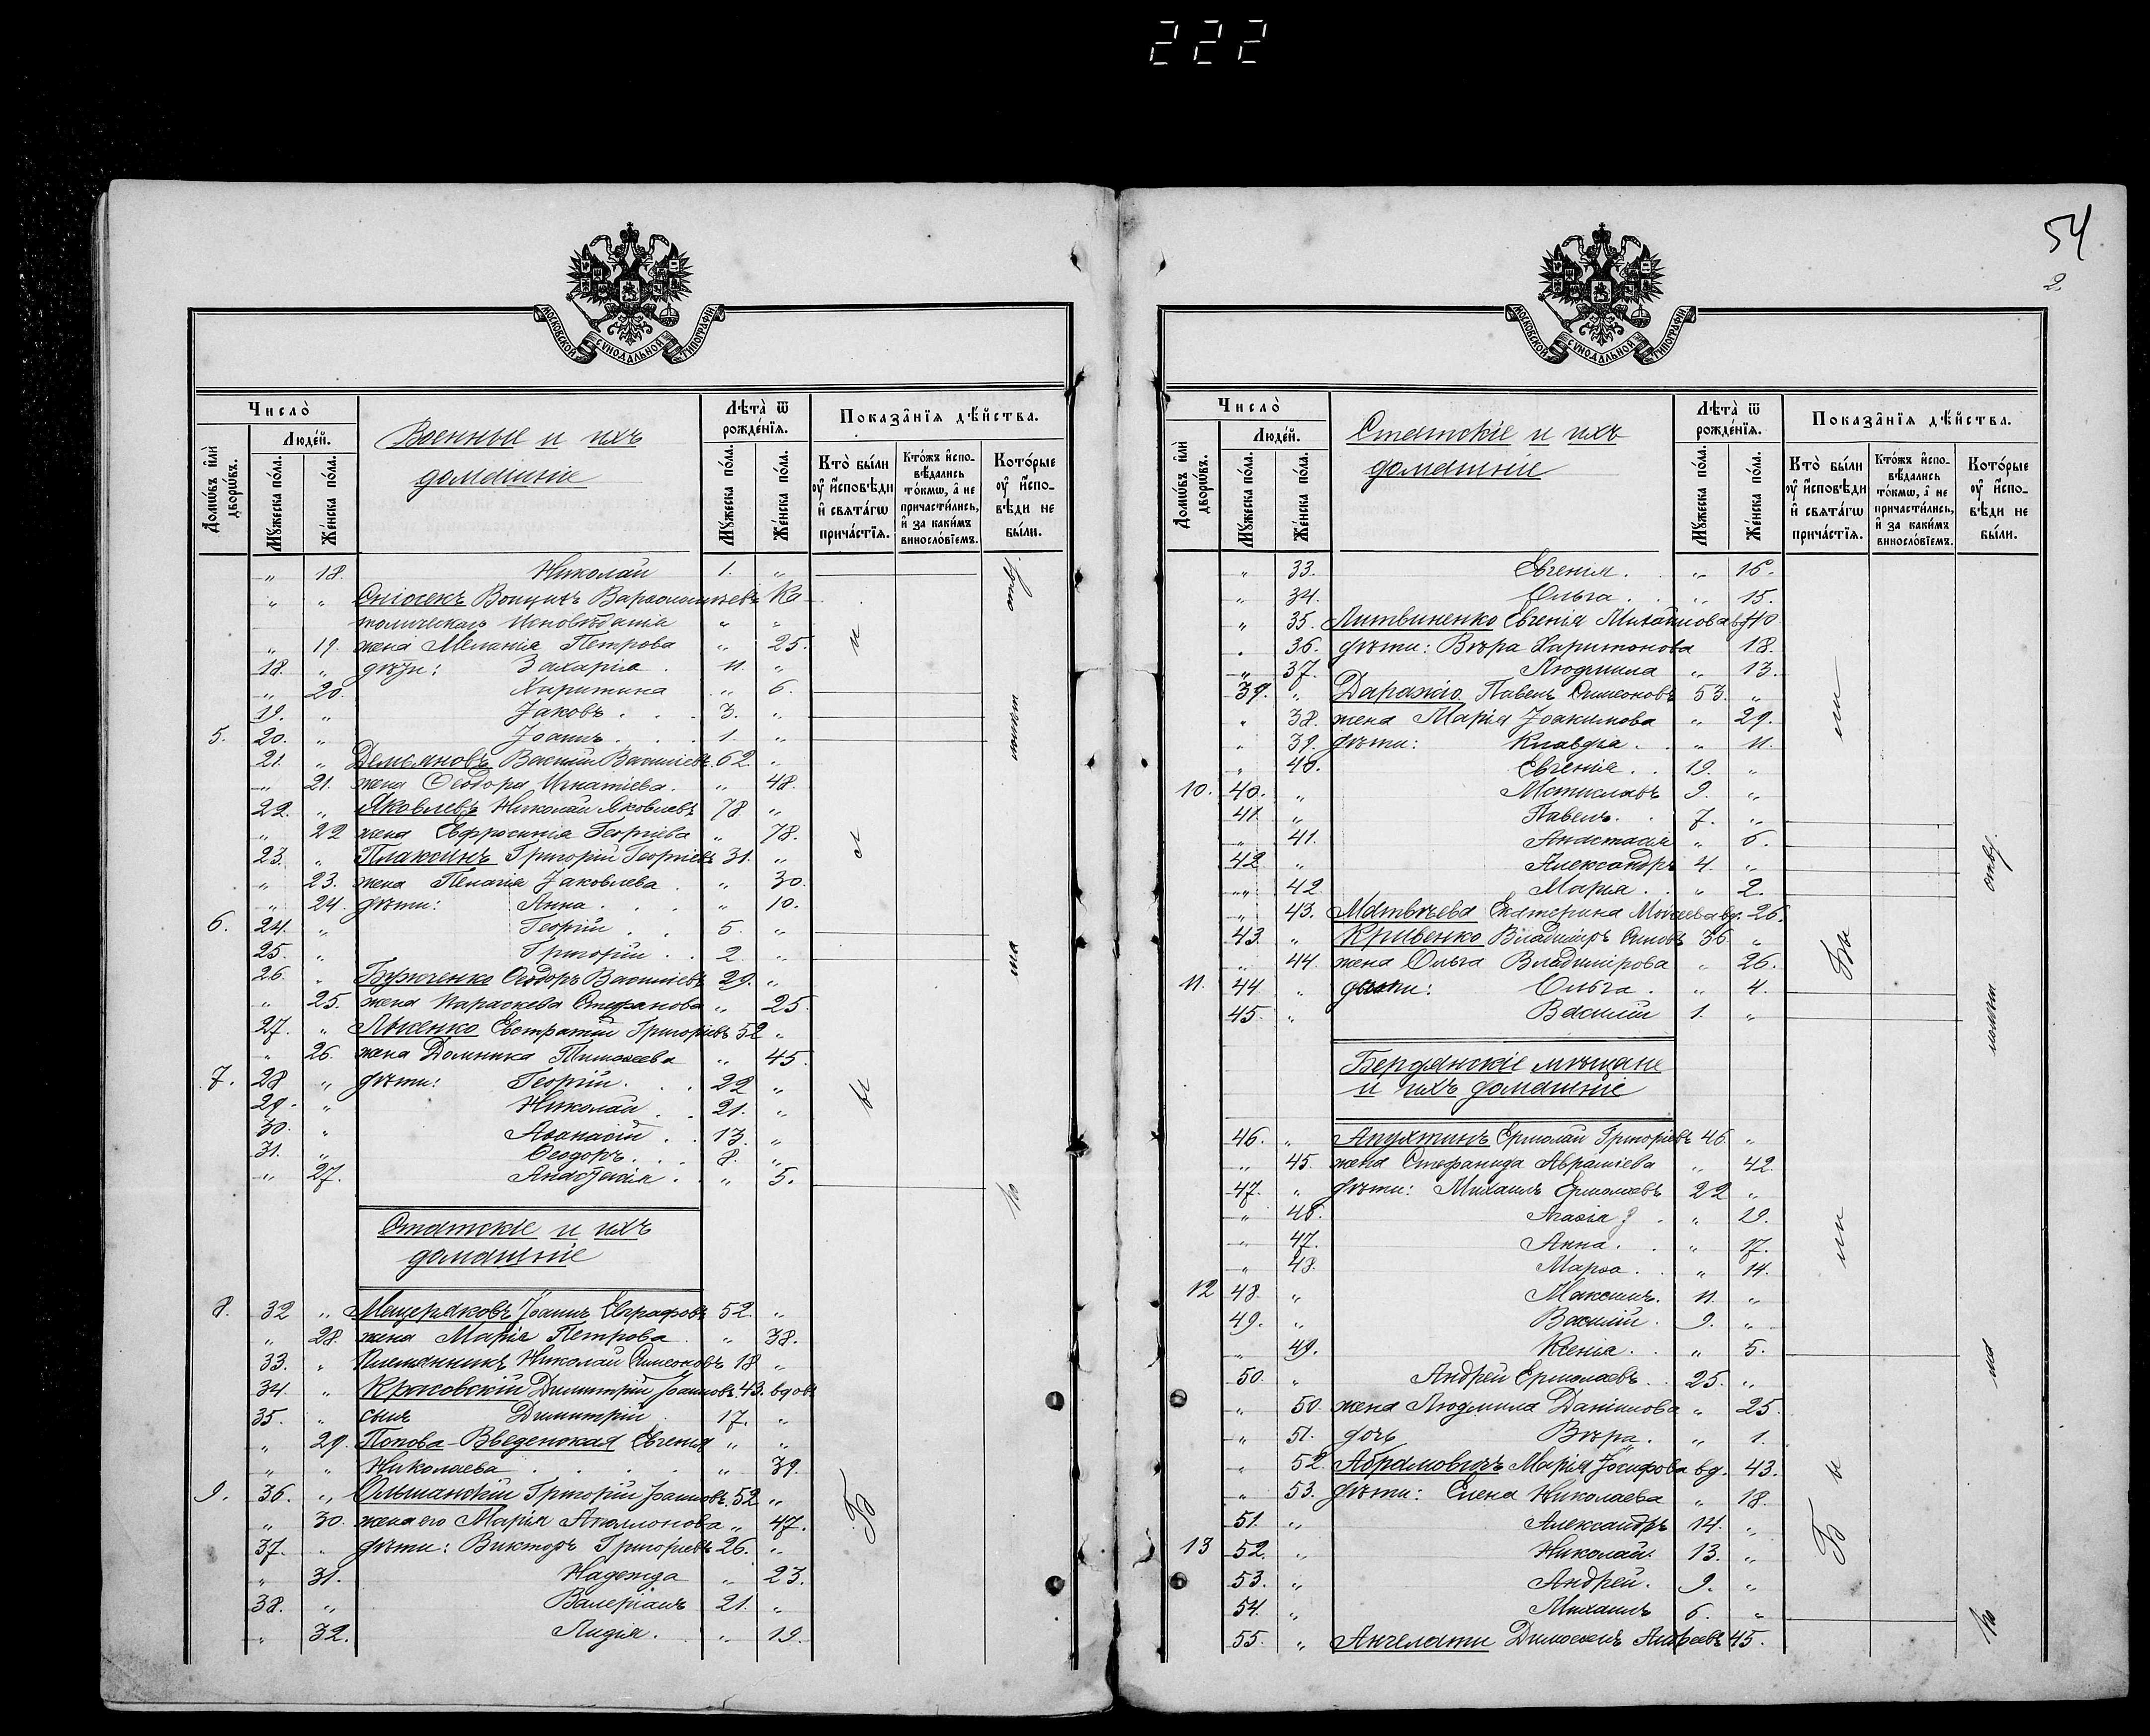 222
МОСКОВСКОЙ СѴНОДАЛЬНОЙ ТИПОГРАФІИ
Число̀
Люде́й.
Домѡ́въ и҆лѝ дворѡ́въ.
Мꙋ́жеска по́ла.
Же́нска по́ла.
Военные и ихъ
домашніе
Лѣ́та ѿ рожде́нїя.
Мꙋ́жеска по́ла.
Же́нска по́ла.
Показа̑нїя дѣ́йства.
Кто̀ бы́ли ᲂу҆ и҆́сповѣди и҆ свята́гѡ прича́стїя.
Кто́жъ и҆спо-вѣ́дались то́кмѡ, а҆ не причасти́лись, и҆ за каки́мъ винослόвїемъ.
Кото́рые ᲂу҆ и҆́спо-вѣди не бы́ли.
„ 18. Николай 1. „
„ „ Вонцикъ Варѳоломѣевъ Ка
толическаго Исповѣданія „ „
„ 19. жена Меланія Петрова „ 25.
18. „ дѣти: Захарія 11. „
„ 20. Харитина „ 6.
19. „ Іаковъ 3. „
5. 20. „ Іоаннъ 1. „
21. „ Демьяновъ Василій Васильевъ 62. „
„ 21. жена Ѳеодора Игнатіева „ 48.
22. „ Яковлевъ Николай Яковлевъ 78 „
„ 22 жена Евфросинія Георгіева „ 78.
23. „ Плаксинъ Григорій Георгіевъ 31. „
„ 23. жена Пелагія Іаковлева „ 30.
„ 24. дѣти: Анна „ 10.
6. 24. „ Георгій 5. „
25. „ Григорій 2. „
26. „ Ѳеодоръ Васильевъ 29. „
„ 25. жена Параскева Стефанова „ 25
27. „ Лысенко Евстратій Григорьевъ 52 „
„ 26. жена Домника Тимоѳеева „ 45.
7. 28 „ дѣти: Георгій 22 „
29. „ Николай 21. „
30. „ Аѳанасій 13. „
31. „ Ѳеодоръ 8. „
„ 27. Анастасія „ 5.
Статскіе и ихъ
домашніе
8. 32 „ Мещеряковъ Іоаннъ Евграфовъ 52. „
„ 28. жена Марія Петрова „ 38.
33. „ Племянникъ Николай Симеоновъ 18 „
34. „ Красовскій Димитрій Іоанновъ 43. вдовъ
35. „ сынъ Димитрій 17. „
„ 29. Попова-Введенская Евгенія „ „
„ „ Николаева „ 39.
9. 36. „ Ольшанскій Григорій Іоанновъ 52 „
„ 30. жена его Марія Аполлонова „ 47.
37. „ дѣти: Викторъ Григорьевъ 26. „
„ 31. Надежда „ 23.
38. „ Валеріанъ 21. „
„ 32. Лидія „ 19.
Б ы л и
По малолѣт
54
2.
МОСКОВСКОЙ СѴНОДАЛЬНОЙ ТИПОГРАФІИ
Число̀
Люде́й.
Домѡ́въ и҆лѝ дворѡ́въ.
Мꙋ́жеска по́ла.
Же́нска по́ла.
Статскіе и ихъ
домашніе
Лѣ́та ѿ рожде́нїя.
Мꙋ́жеска по́ла.
Же́нска по́ла.
Показа̑нїя дѣ́йства.
Кто̀ бы́ли ᲂу҆ и҆́сповѣди и҆ свята́гѡ прича́стїя.
Кто́жъ и҆спо-вѣ́дались то́кмѡ, а҆ не причасти́лись, и҆ за каки́мъ винослόвїемъ.
Кото́рые ᲂу҆ и҆́спо-вѣди не бы́ли.
„ 33. Евгенія „ 16.
„ 34. Ольга „ 15.
„ 35. Литвиненко Евгенія Михайлова вд. 40
„ 36. дѣти: Вѣра Харитонова 18.
„ 37. Людмила „ 13.
39. „ Павелъ Симеоновъ 53. „
„ 38. жена Марія Іоакимова „ 29.
„ 39. дѣти: Клавдія „ 11.
„ 40. Евгенія 19. „
10. 40. „ Мстиславъ 9. „
41. „ Павелъ 7. „
„ 41. Анастасія „ 6.
42 „ Александръ 4. „
„ 42 Марія „ 2.
„ 43. Матвѣева Екатерина Моисеева вд. 26.
43. „ Кривенко Владиміръ 36 „
„ 44. жена Ольга Владимірова „ 26.
11. 44 „ дѣти: Ольга „ 4.
45. „ Василій 1. „
Бердянскіе мѣщане
и ихъ домашніе
46. „ Апухтинъ Ермолай Григорьевъ 46. „
„ 45. жена Стефанида Авраміева „ 42.
47. „ дѣти: Михаилъ Ермолаевъ 22 „
„ 46. Агаѳія „ 19.
„ 47. Анна „ 17.
„ 48. Марѳа „ 14.
12 48. „ Максимъ 11. „
49. „ Василій 9. „
„ 49. Ксенія „ 5.
50. „ Андрей Ермолаевъ 25. „
„ 50. жена Людмила Даніилова „ 25.
„ 51. дочь Вѣра „ 1.
„ 52. Абрамовичъ Марія Іосифова вд. 43.
„ 53. дѣти: Елена Николаева „ 18.
51. „ Александръ 14. „
13 52. „ Николай 13. „
53. „ Андрей 9. „
54. „ Михаилъ 6. „
55. „ Ангелати Андреевъ 45.
Б ы ли
Бы ли
По малолѣт